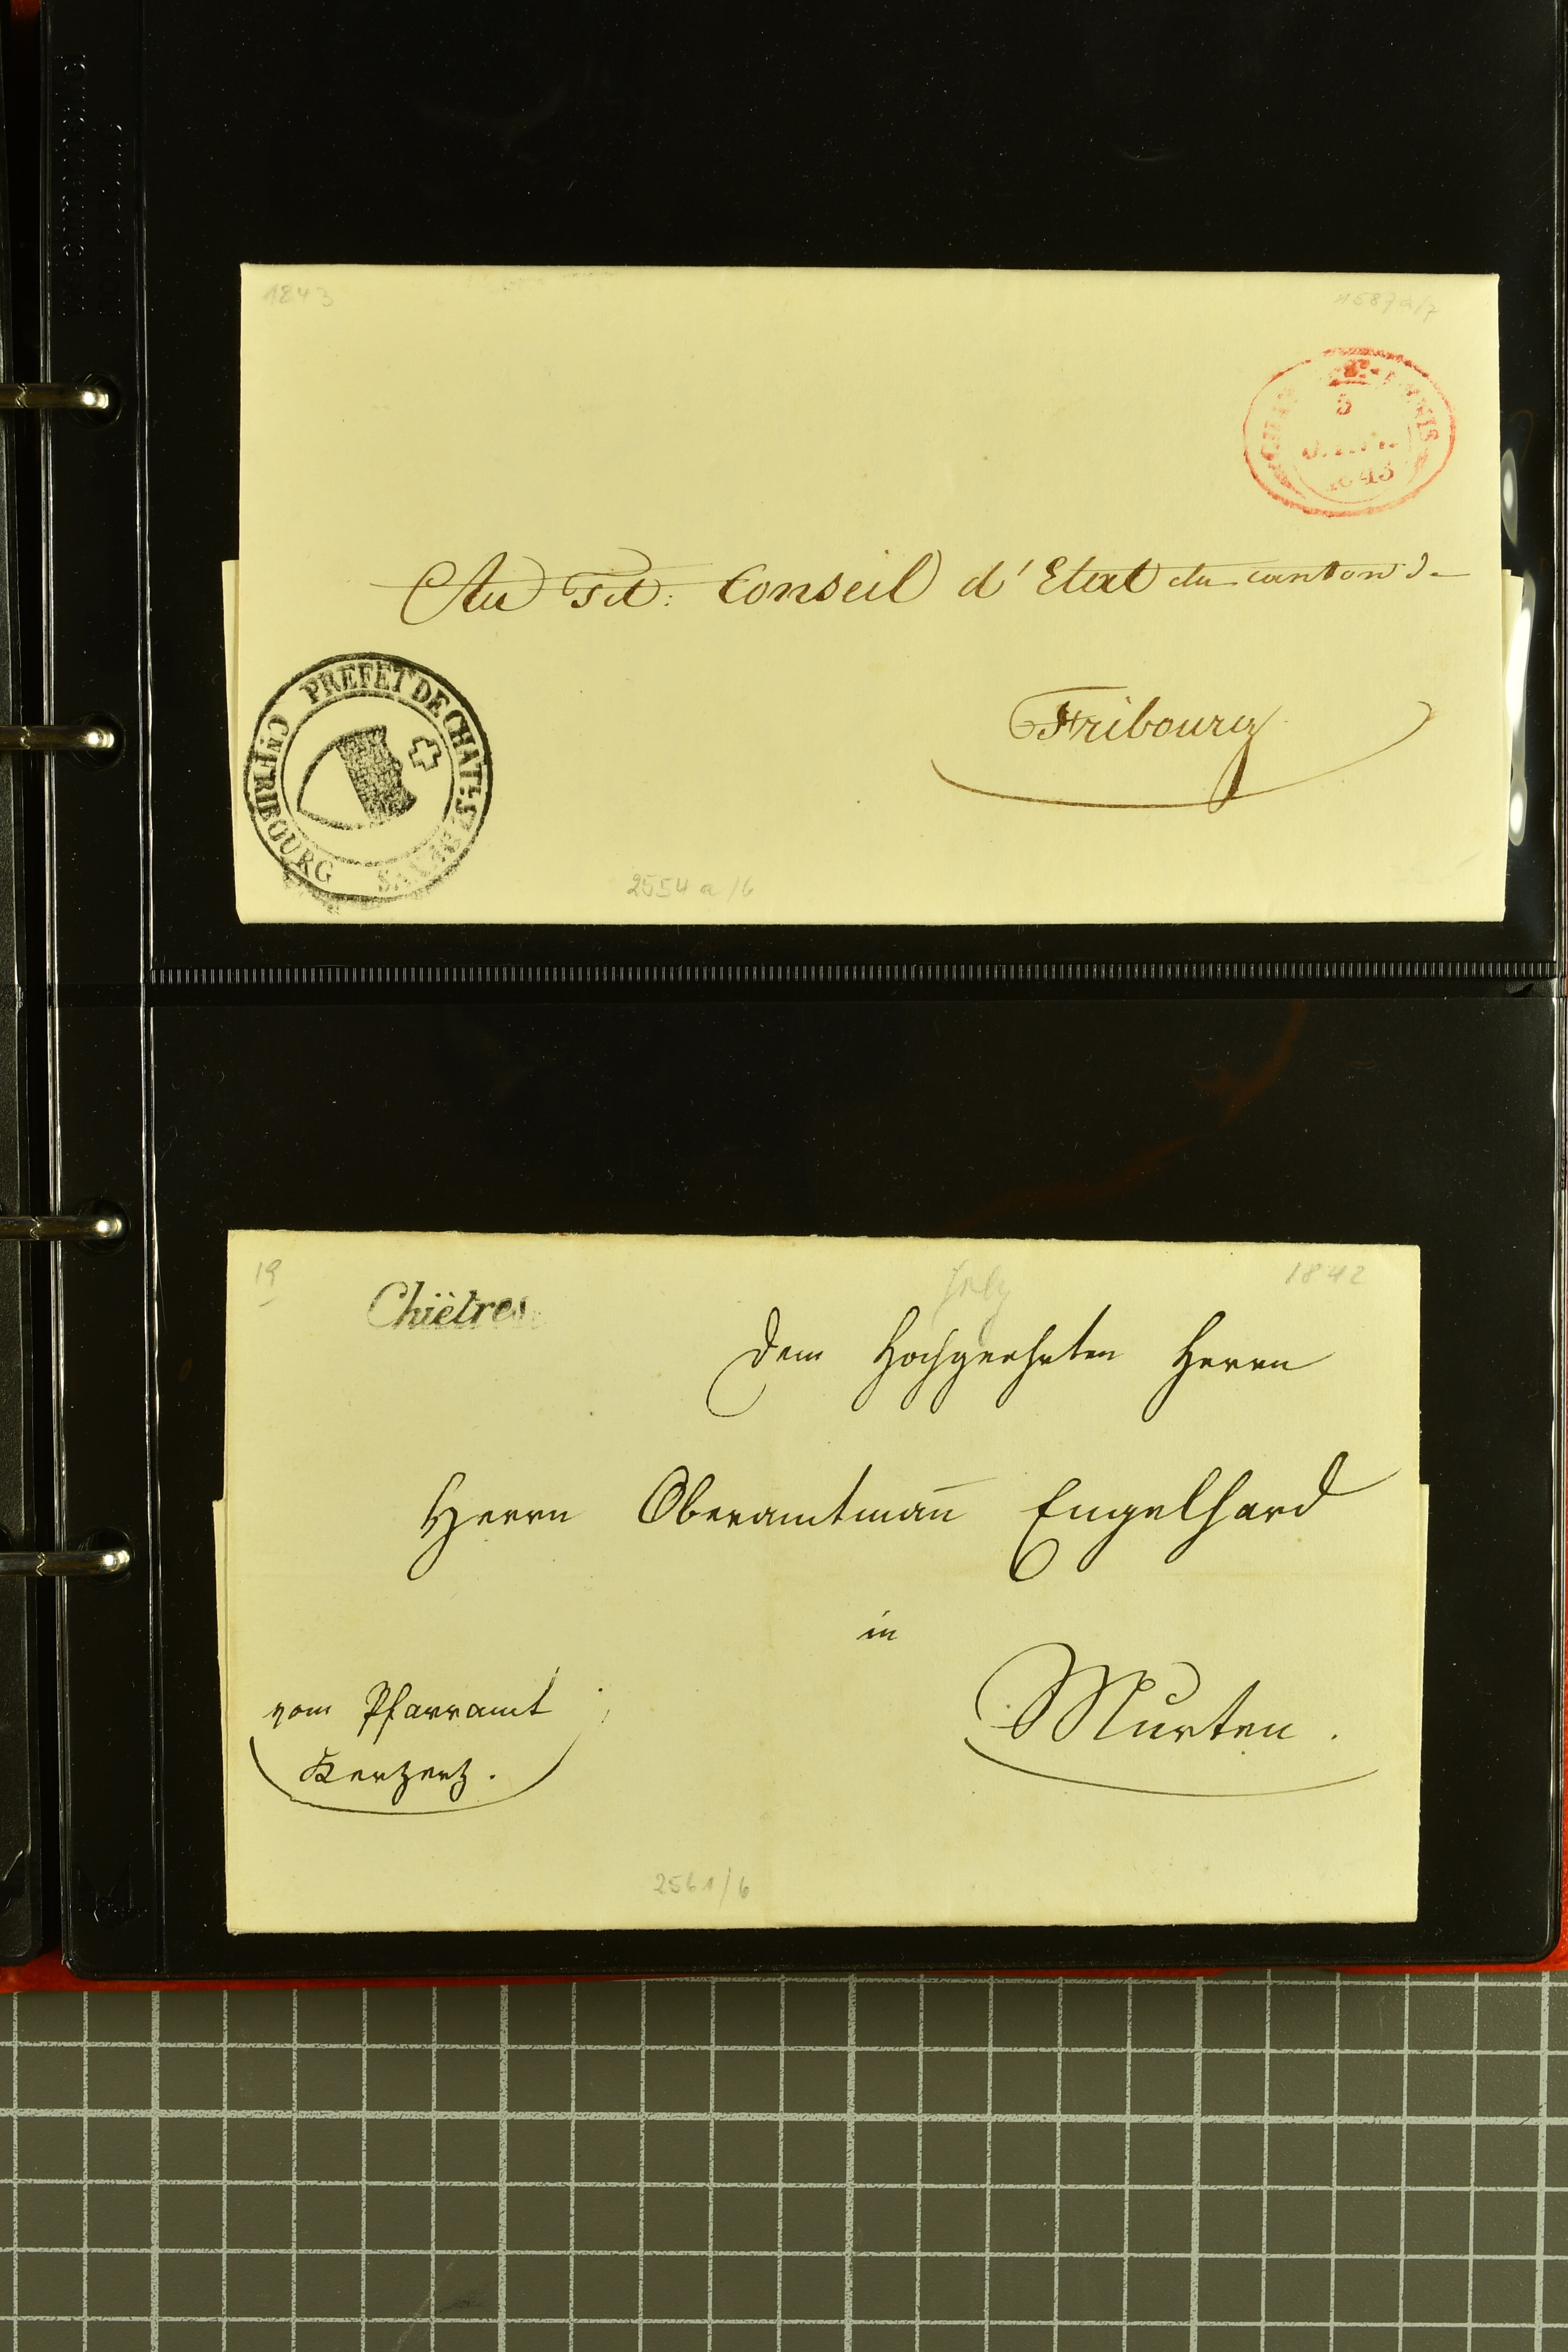 1843
5
1843
Au Tit: Conseil d'Etat du canton de
Fribourg
PREFET DE CHATEL ST DENYS
CN FRIBOURG
2554 a/6
19
Chiètres
July
1842
Dem Hochgeehrten Herrn
Herrn Oberamtman̄ Engelhard
in
Murten.
vom Pfarramt
Kerzerz.
2561/6